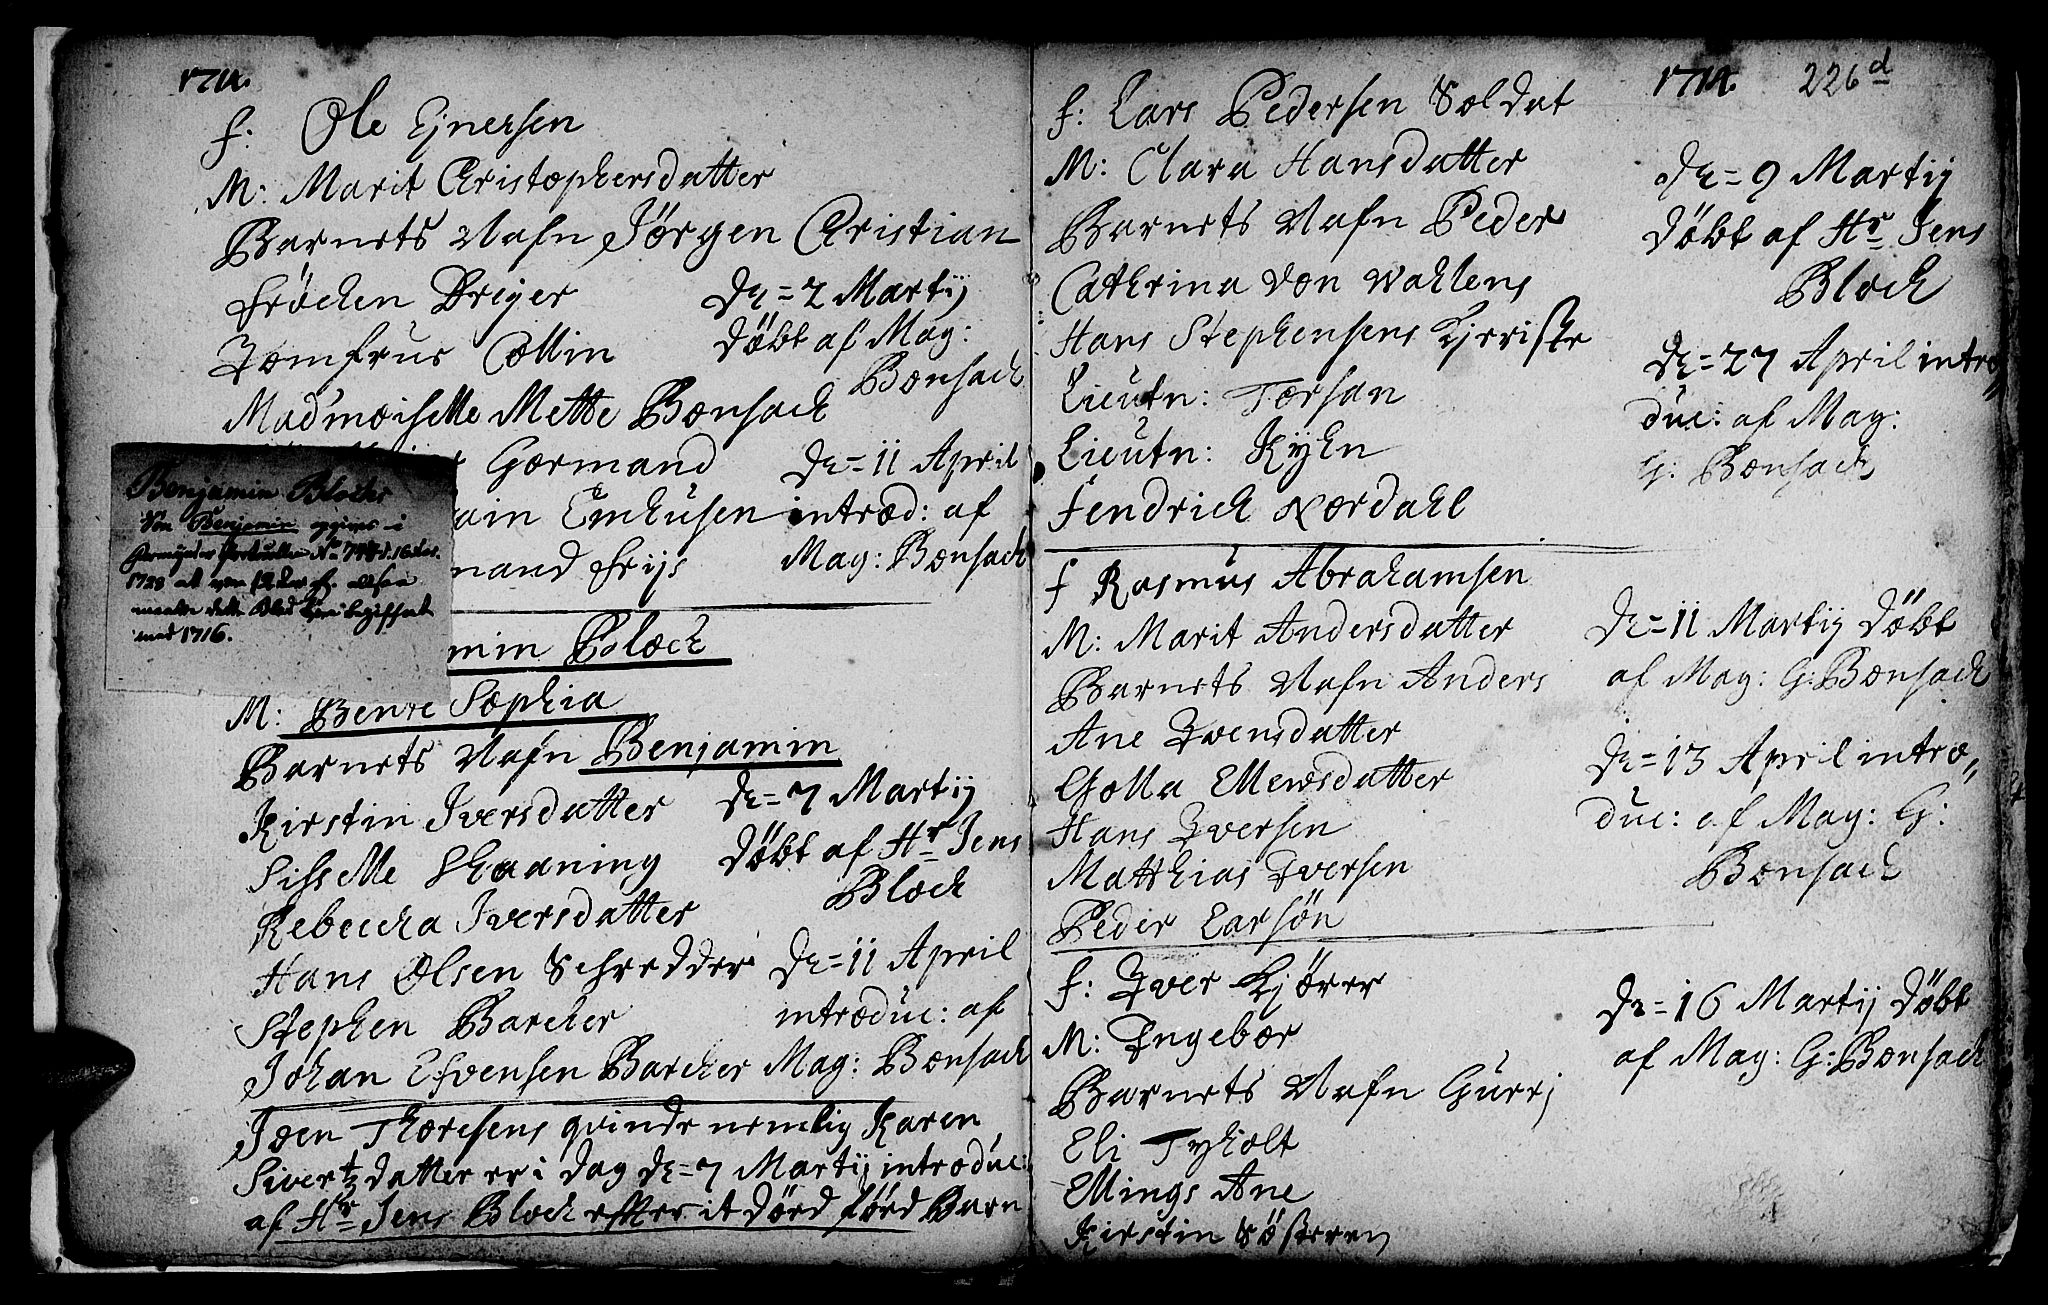 1714.
f: Ole Ejnersen
M: Marit Christophersdatter
Barnets Nafn Jörgen Christian
fröchen Dreyer
Jomfrue Collin
Madmoiselle Mette Bonsach
Gormand
Emhusen
mand friis
De=2 Martij
Döbt af Mag:
Bonsach
De=11 April
introd: af
Mag: Bonsach
Benjamin Blochs
Søn Benjamin opgives i
1728 at
dette Blad
med 1716.
min Bloch
M: Bente Sophia
Barnets Nafn Benjamin
Kirstin Iversdatter
Sisselle Skaaning
Rebecha Iversdatter
Hans Olsen Schredder
Stephen Barcher
Johan Efvensen Barcher
De=7 Martij
Döbt af Hr Jens
Bloch
De=11 April
introduc: af
Mag: Bonsach
Joen Thoresens qvinde nemlig Karen
Sivertz datter er i dag De=7 Martij introduc:
af Hr Jens Bloch efter it död föd Barn
1714. 226 d
f: Lars Pedersen Soldat
M: Clara Hansdatter
Barnets Nafn Peder
Cathrina von Wahlens
Hans Stephensens Kjeriste
Lieutn: Torsan
Lieutn: Kyhn
Fendrich Nordahl
De=9 Martij
Döbt af Hr Jens
Bloch
De=27 April intro
duc: af Mag:
G: Bonsach
f Rasmus Abrahamsen
M: Marit Andersdatter
Barnets Nafn Anders
Ane Svensdatter
Golla Ellensdatter
Hans Iversen
Matthias Iversen
Peder Larsön
De=11 Martij Döbt
af Mag: G: Bonsach
De=13 April intro=
duc: af Mag: G:
Bonsach
f: Iver Kjörer
M: Ingebor
Barnets Nafn Gurrj
Eli Tyholt
Ellings Ane
Kirstin Sösteren
De=16 Martij Döbt
af Mag: G: Bonsach